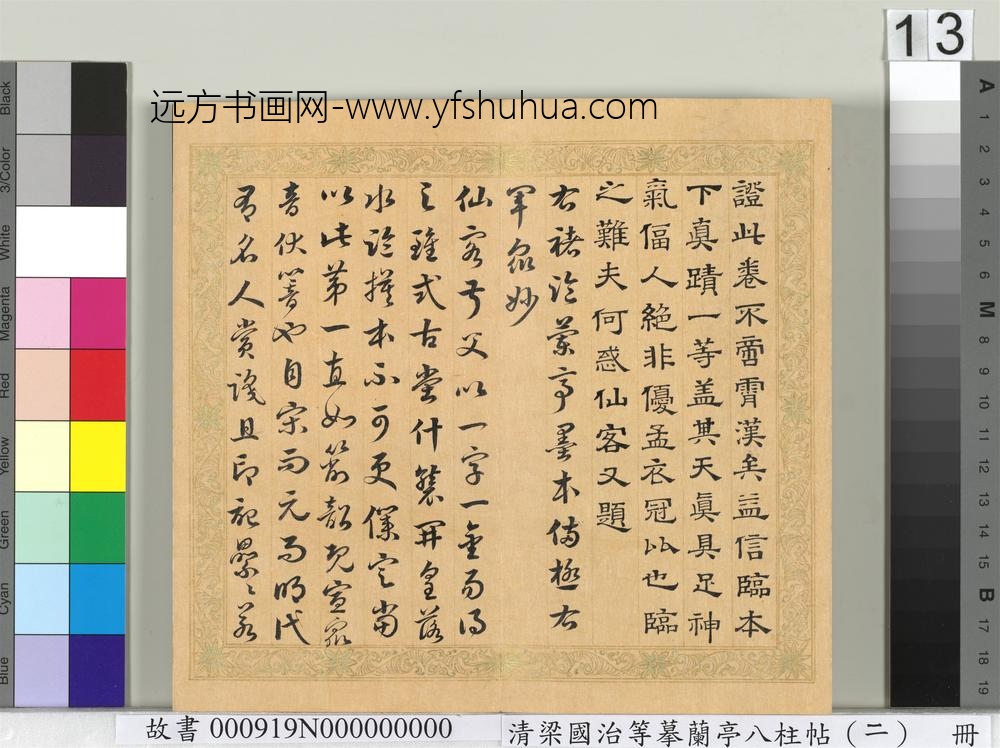 13
远方书画网-www.yfshuhua.com
證此卷不啻霄漢矣益信臨本
下真蹟一等盖其天真具足神
氣偪人絶非優孟衣冠比也臨
之難夫何惑仙客又題
右褚臨蘭亭墨本備極右
軍眾妙
仙客父以一字一金而得
之雖式古堂什襲開皇落
水臨摸本不可更僕定當
以此第一直如簫韶既宣眾
音伏也自宋而元而明代
有名人賞識且印記纍〻若
故書 000919N000000000
清梁國治等摹蘭亭八柱帖（二） 冊
Black
3/Color
White
Magenta
Red
Yellow
Green
Cyan
Blue
A
1
2
3
4
5
6
M
8
9
10
11
12
13
14
15
B
17
18
19